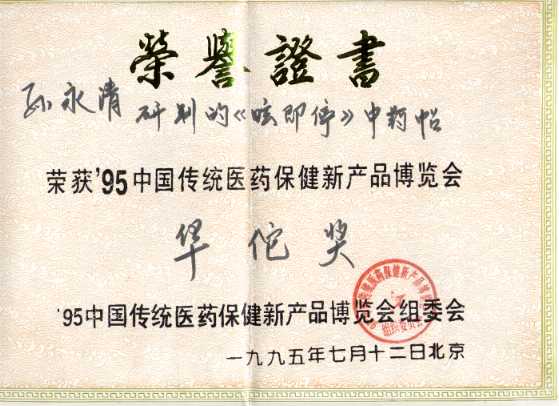 榮譽證書
孙永清 研制的《咳即停》中药帖
荣获'95中国传统医药保健新产品博览会
华佗奖
'95中国传统医药保健新产品博览会组委会
一九九五年七月十二日北京